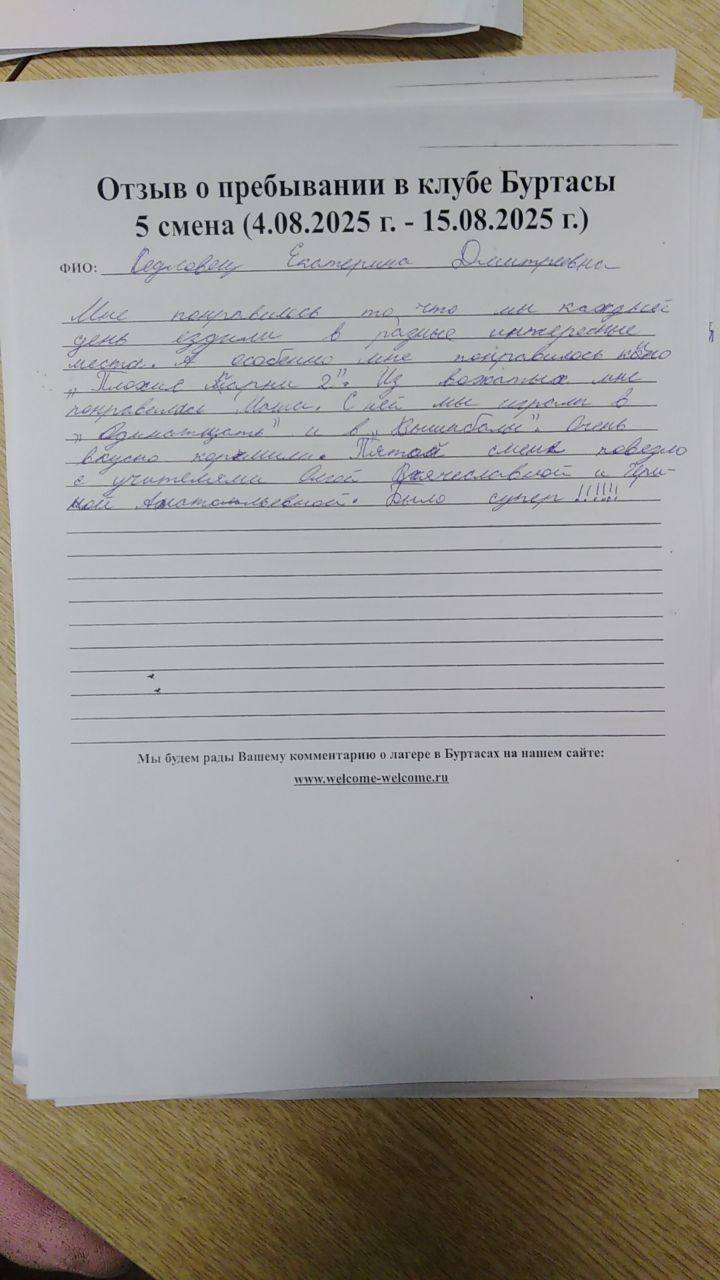 Отзыв о пребывании в клубе Буртасы
5 смена (4.08.2025 г. - 15.08.2025 г.)
ФИО: Седловец Екатерина Дмитриевна
Мне понравилось то, что мы каждый
день ездили в разные интересные
места. А особенно мне понравилось
„Плохие парни 2". Из вожатых мне
понравилась Маша. С ней мы играли в
„Одинатцать" и в „Вышибалы". Очень
вкусно кормили. Пятой смене повезло
с учителями Олей Вячеславной и Ири-
ной Анатольевной. Было супер!!!!!!
Мы будем рады Вашему комментарию о лагере в Буртасах на нашем сайте:
www.welcome-welcome.ru